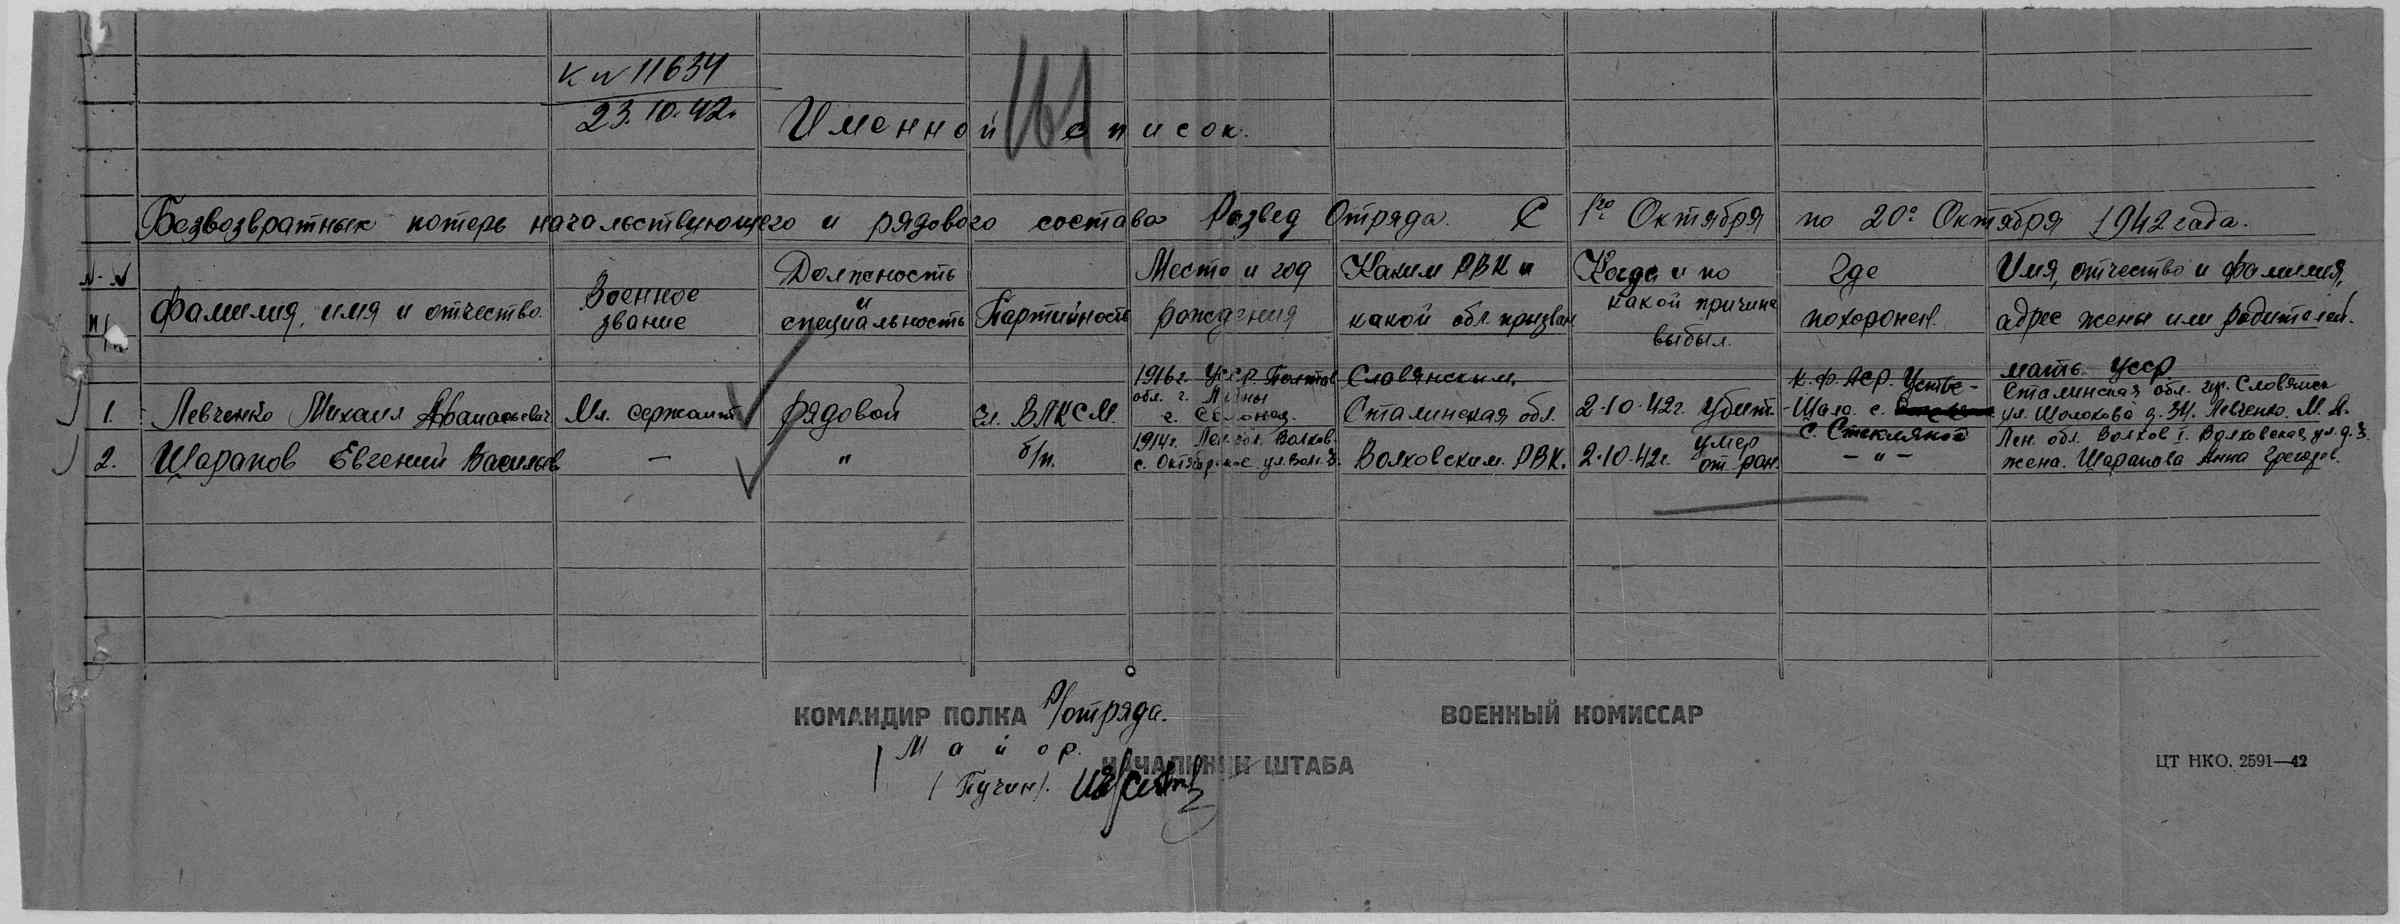 к № 11634
23.10.42г.
161
Именной список.
Безвозвратных потерь начальствующего и рядового состава Развед Отряда. С 1го Октября по 20е Октября 1942 года.
№-№ п/п
Фамилия, имя и отчество.
Военное звание
Должность и специальность
Партийность
Место и год рождения
Каким РВК и какой обл. призван
Когда и по какой причине выбыл.
Где похоронен.
Имя, отчество и фамилия, адрес жены или родителей.
1. Левченко Михаил Афанасьевич
Мл. сержант
рядовой
Чл. ВЛКСМ.
1916г. УССР. Полтав
обл. г.
с.
Славянским.
Сталинская обл.
2.10.42г. убит.
К.Ф.АСР. Устье-
-Шала. с.
с. Стекляное
мать УССР
Сталинская обл. гор. Словянск
ул. Шолохова д. 34. Левченко. М. А.
2. Шарапов Евгений Васильев
—
"
б/п.
1914г. Лен. обл. Волхов-
с. Октябрьское ул. Вол. 3.
Волховским. РВК.
2.10.42г. умер от ран.
— " —
Лен. обл. Волхов I. Волховская ул. д. 3.
жена. Шарапова Анна
КОМАНДИР ПОЛКА Р/отряда.
ВОЕННЫЙ КОМИССАР
Майор.
НАЧАЛЬНИК ШТАБА
(Пучин).
ЦТ НКО. 2591—42